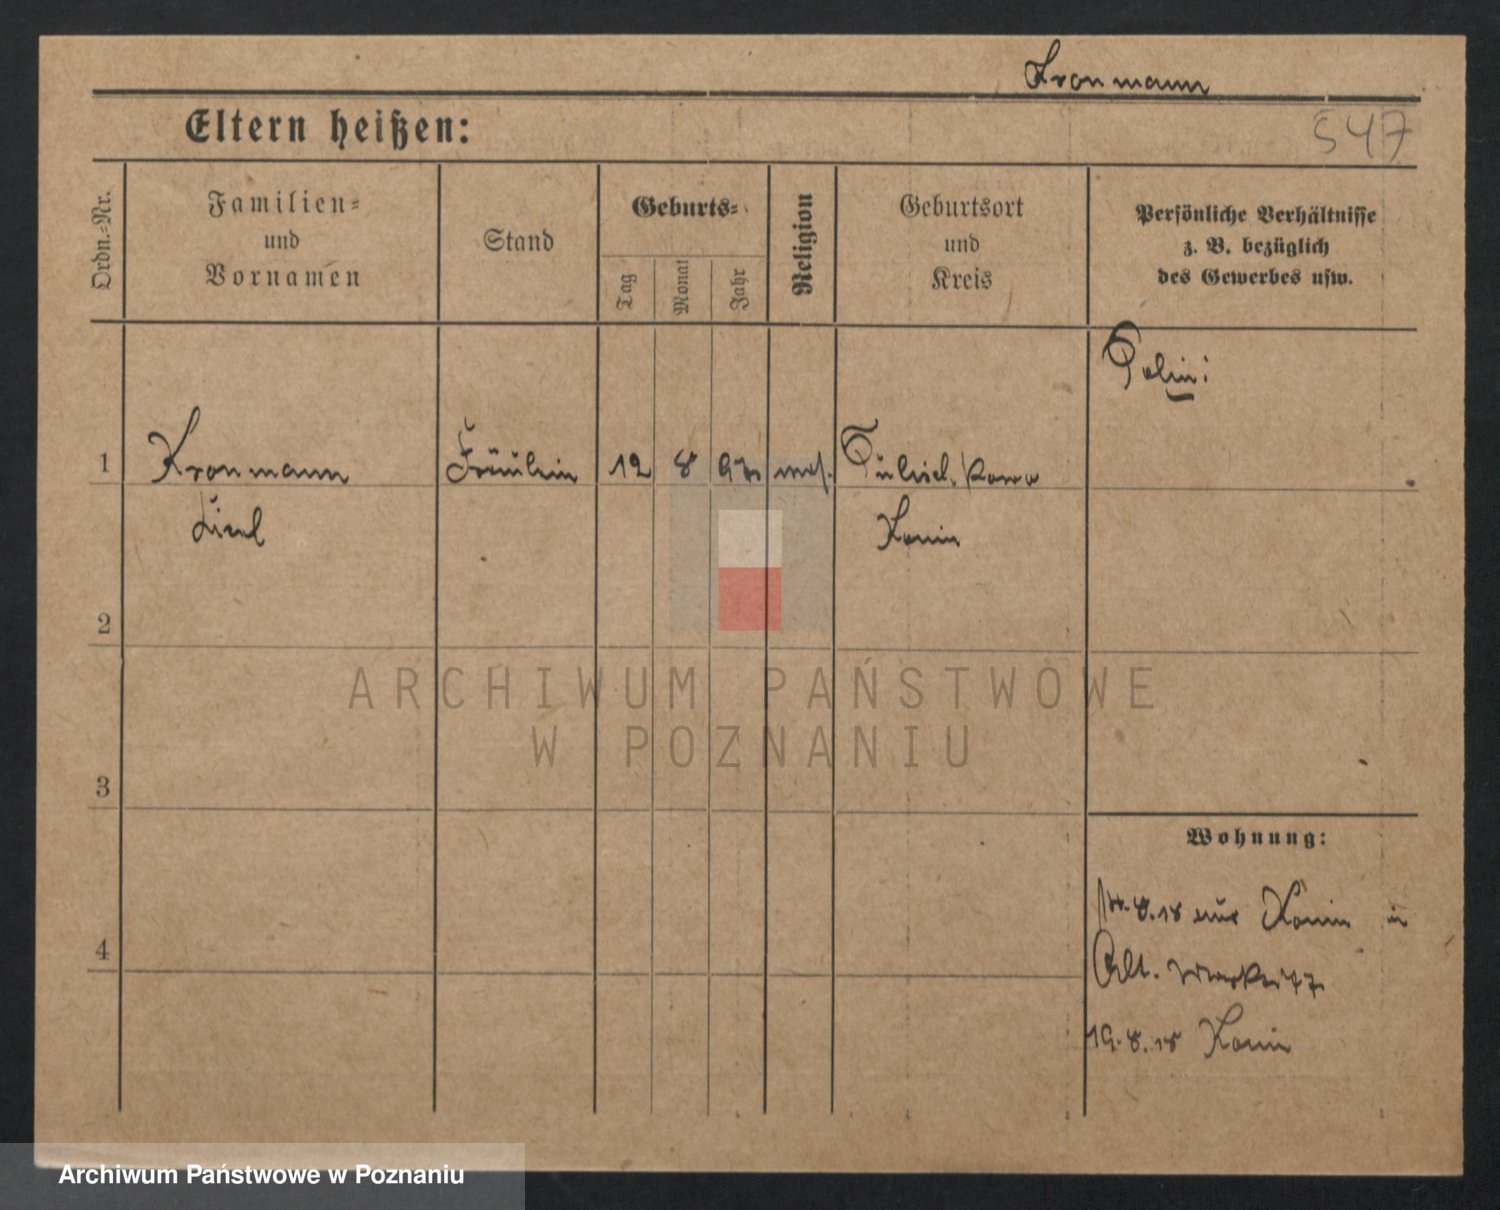 Kronmann
Eltern heißen:
547
Ordn.-Nr.
Familien-
und
Vornamen
Stand
Geburts-
Tag
Monat
Jahr
Religion
Geburtsort
und
Kreis
Persönliche Verhältnisse
z. B. bezüglich
des Gewerbes usw.
Polin:
1
Kronmann
Fräulein
12
8
mos.
Konin
2
3
4
Wohnung:
8.18 aus Konin in
Alt.
19.8.18 Konin
ARCHIWUM PAŃSTWOWE
W POZNANIU
Archiwum Państwowe w Poznaniu